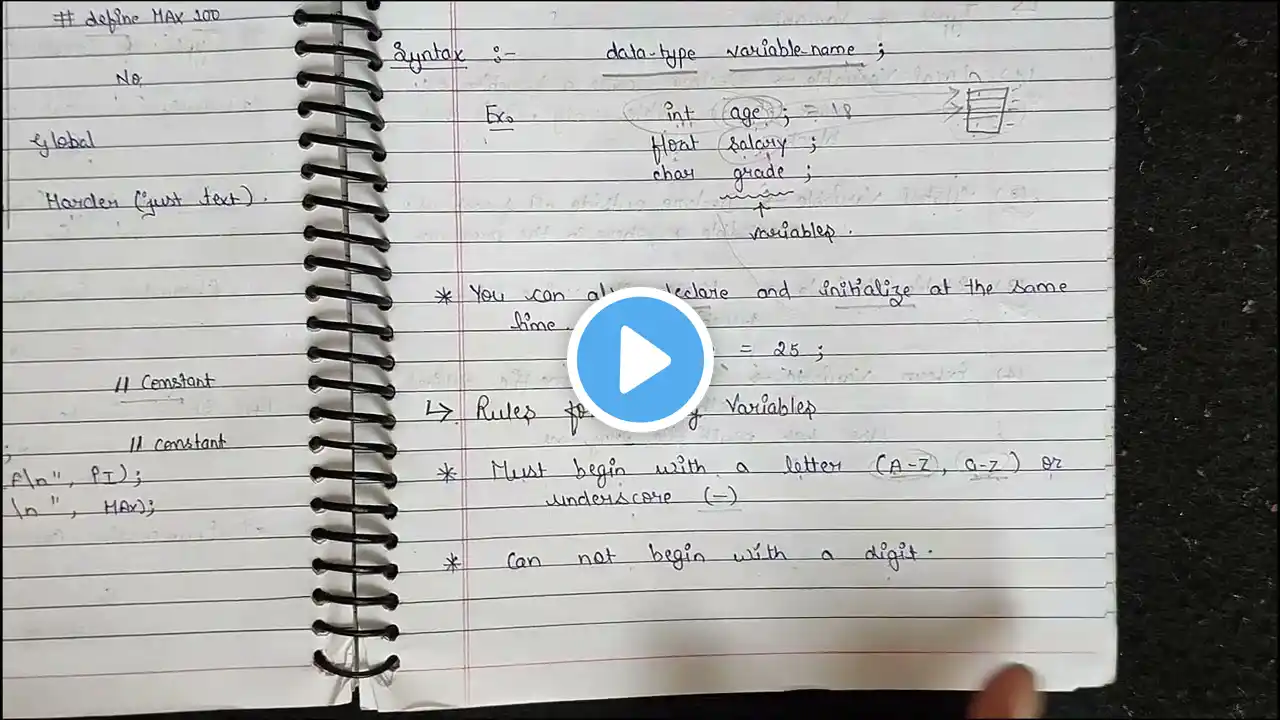 # define MAX 100
No
Global
Harder (just text).
// Constant
// constant
;
f\n", PI);
\n", MAX);
Syntax :- data-type variable-name ;
Ex. int age ; = 18
float salary ;
char grade ;
variables.
* You can declare and initialize at the same
time.
= 25 ;
↳ Rules Variables
* Must begin with a letter (A-Z, a-z) or
underscore (_)
* Can not begin with a digit.